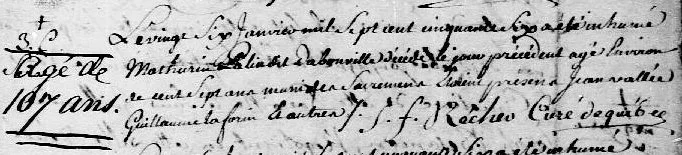 Le vingt Six Janvier mil Sept cent cinquante Six a été inhumé
Mathurin d'abonville décédé le jour précédent agé Environ
de cent Sept ans muni des Sacremens Etoient présens Jean vallée
Guillaume la forin & autres J. f. Recher Curé de québec
agé de
107 ans.